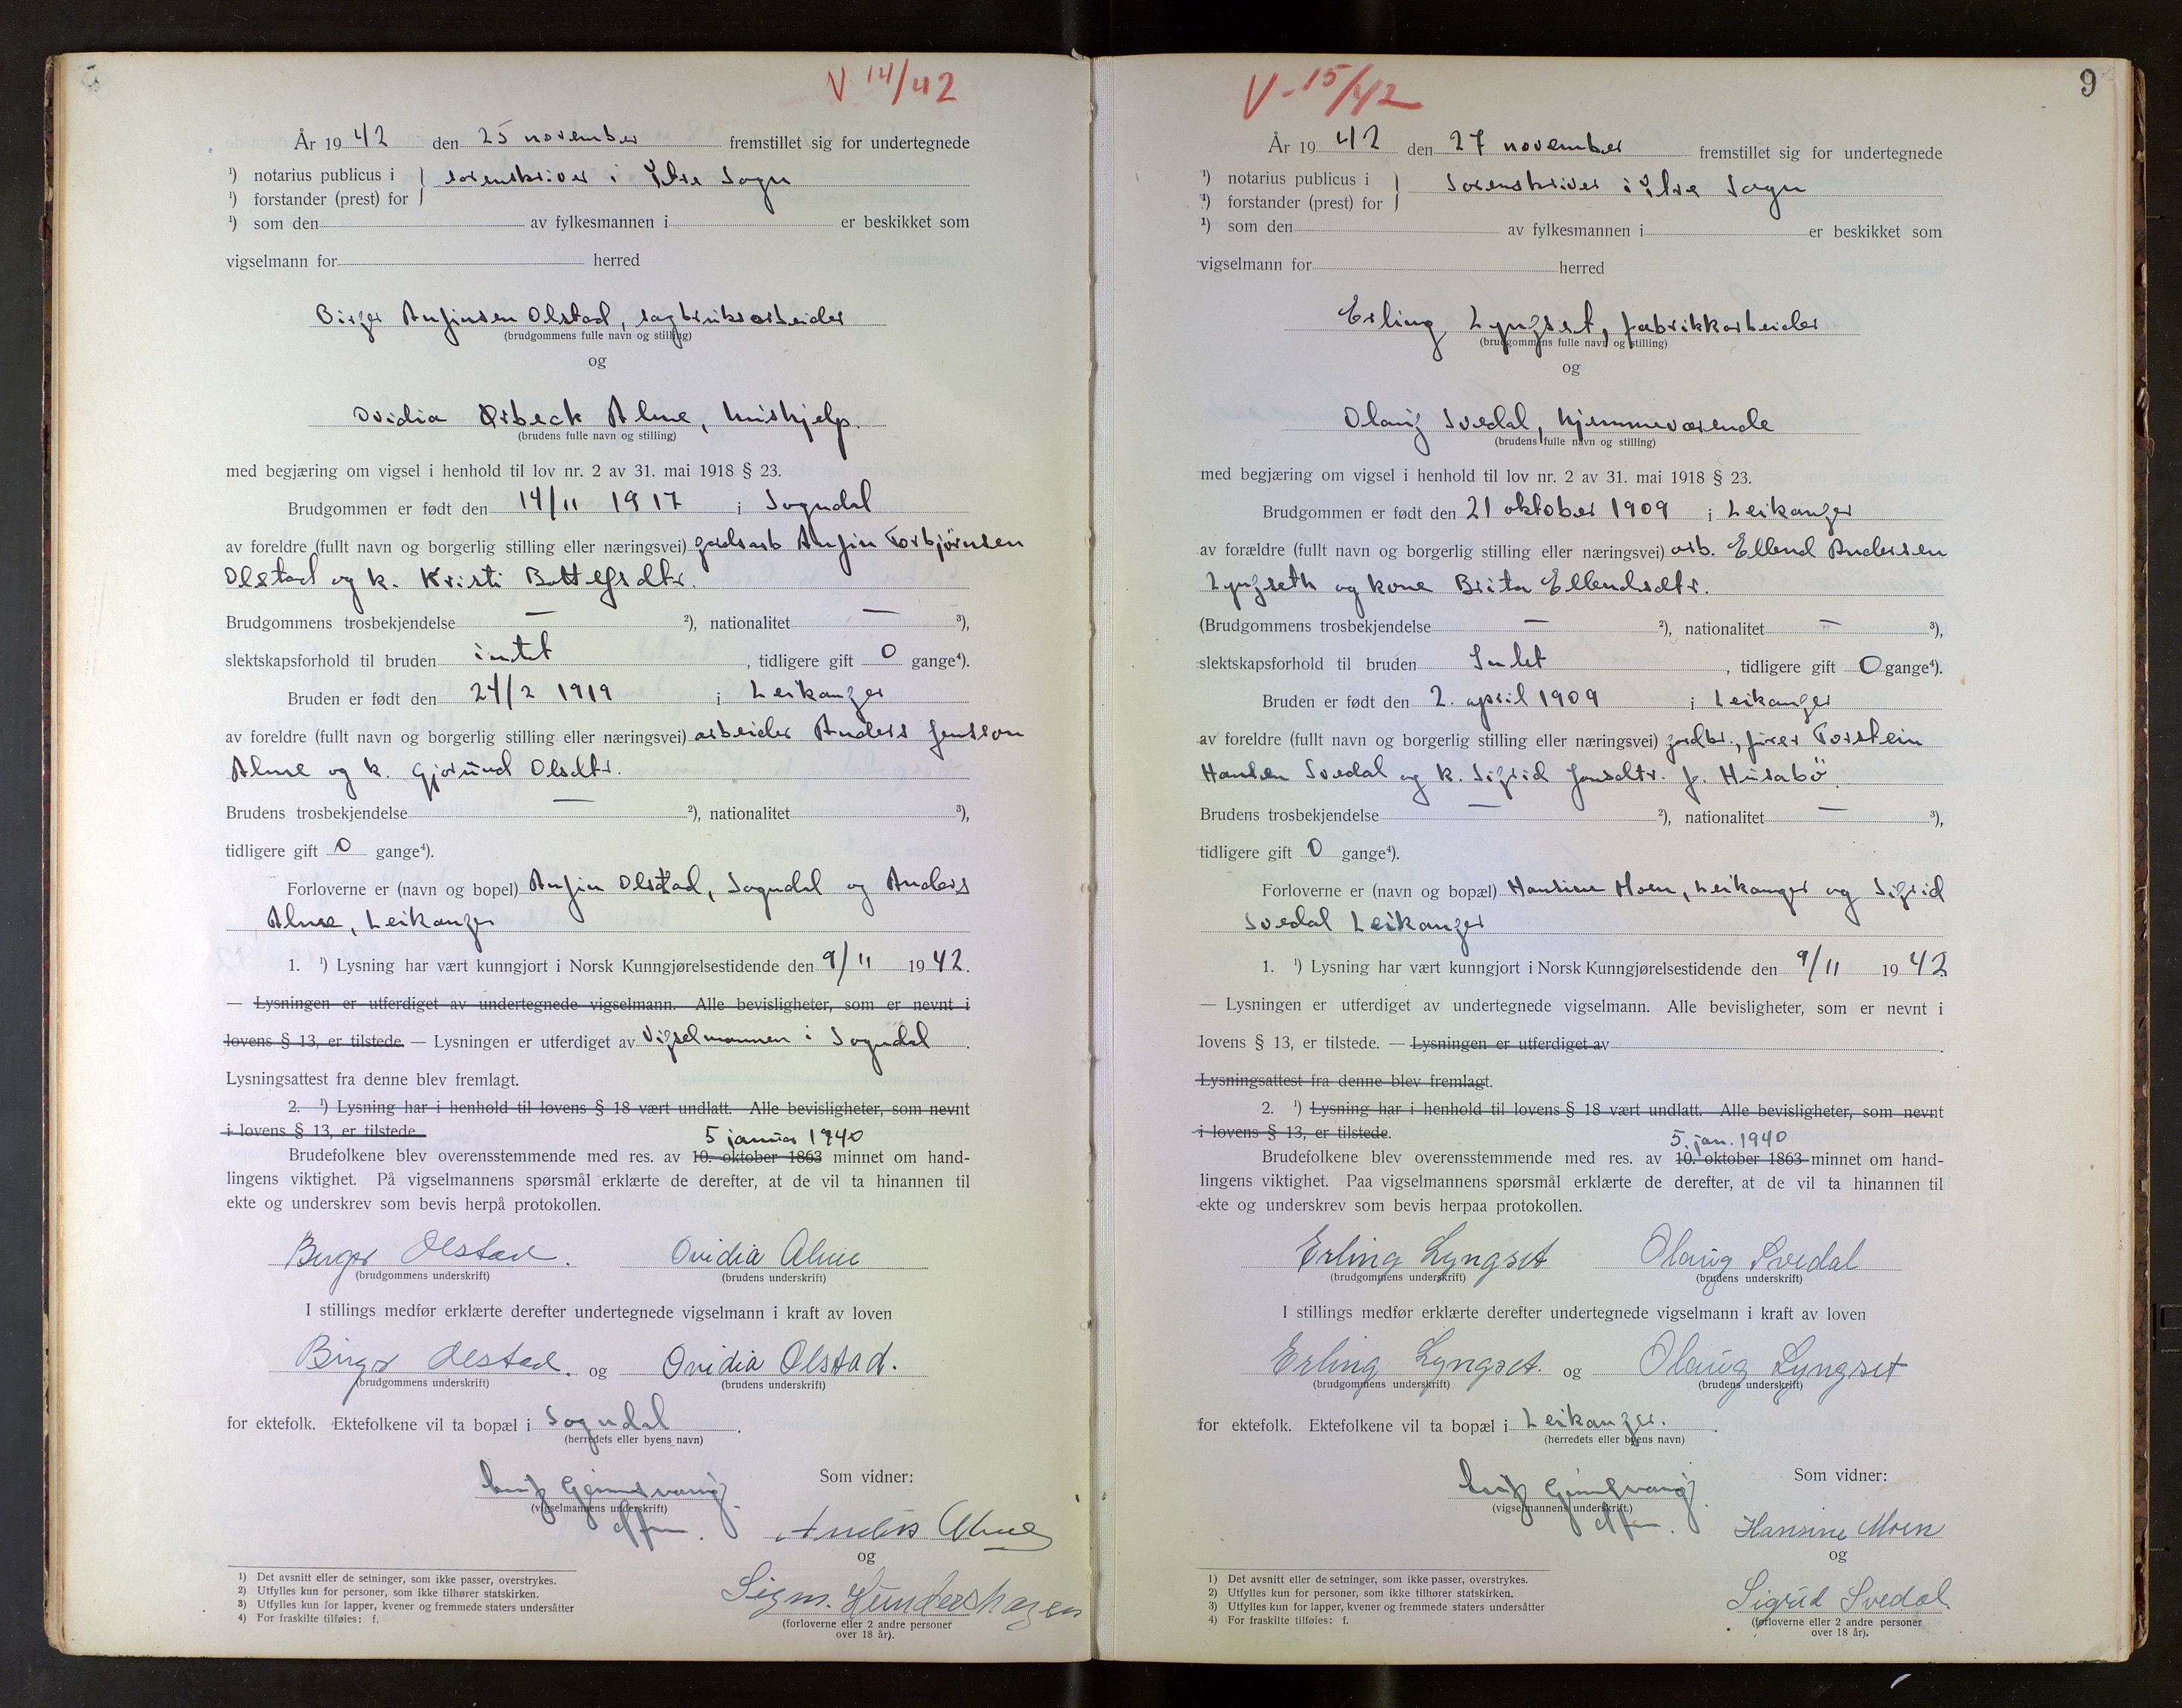 V 14/42
År 1942 den 25 november fremstillet sig for undertegnede
¹) notarius publicus i } sorenskriver i Ytre Sogn
¹) forstander (prest) for
¹) som den av fylkesmannen i er beskikket som
vigselmann for herred
Birger Anfinsen Olstad, sagbruksarbeider
(brudgommens fulle navn og stilling)
og
Ovidia Ørbeck Alme, hushjelp.
(brudens fulle navn og stilling)
med begjæring om vigsel i henhold til lov nr. 2 av 31. mai 1918 § 23.
Brudgommen er født den 14/11 1917 i Sogndal
av foreldre (fullt navn og borgerlig stilling eller næringsvei) gardsarb Anfin Torbjørnsen
Olstad og k. Kristi Botolfsdtr.
Brudgommens trosbekjendelse — ²), nationalitet — ³),
slektskapsforhold til bruden intet, tidligere gift 0 gange⁴).
Bruden er født den 24/2 1919 i Leikanger
av foreldre (fullt navn og borgerlig stilling eller næringsvei) arbeider Anders Jensson
Alme og k. Gjørund Olsdtr.
Brudens trosbekjendelse — ²), nationalitet ³),
tidligere gift 0 gange⁴).
Forloverne er (navn og bopel) Anfin Olstad, Sogndal og Anders
Alme, Leikanger
1. ¹) Lysning har vært kunngjort i Norsk Kunngjørelsestidende den 9/11 1942.
— Lysningen er utferdiget av undertegnede vigselmann. Alle bevisligheter, som er nevnt i
lovens § 13, er tilstede. — Lysningen er utferdiget av Vigselmannen i Sogndal.
Lysningsattest fra denne blev fremlagt.
2. ¹) Lysning har i henhold til lovens § 18 vært undlatt. Alle bevisligheter, som nevnt
i lovens § 13, er tilstede.
5 januar 1940
Brudefolkene blev overensstemmende med res. av 10. oktober 1863 minnet om hand-
lingens viktighet. På vigselmannens spørsmål erklærte de derefter, at de vil ta hinannen til
ekte og underskrev som bevis herpå protokollen.
Birger Olstad. Ovidia Alme
(brudgommens underskrift) (brudens underskrift)
I stillings medfør erklærte derefter undertegnede vigselmann i kraft av loven
Birger Olstad. og Ovidia Olstad.
(brudgommens underskrift) (brudens underskrift)
for ektefolk. Ektefolkene vil ta bopæl i Sogndal.
(herredets eller byens navn)
Som vidner:
(vigselmannens underskrift)
Anders Alme
og
Sigm. Hundershagen
(forloverne eller 2 andre personer
over 18 år).
1) Det avsnitt eller de setninger, som ikke passer, overstrykes.
2) Utfylles kun for personer, som ikke tilhører statskirken.
3) Utfylles kun for lapper, kvener og fremmede staters undersåtter
4) For fraskilte tilføies: f.
V-15/42
9
År 1942 den 27 november fremstillet sig for undertegnede
¹) notarius publicus i } Sorenskriver i Ytre Sogn
¹) forstander (prest) for
¹) som den av fylkesmannen i er beskikket som
vigselmann for herred
Erling Lyngset, fabrikkarbeider
(brudgommens fulle navn og stilling)
og
Olaug Svedal, hjemmeværende
(brudens fulle navn og stilling)
med begjæring om vigsel i henhold til lov nr. 2 av 31. mai 1918 § 23.
Brudgommen er født den 21 oktober 1909 i Leikanger
av forældre (fullt navn og borgerlig stilling eller næringsvei) arb. Ellend Andersen
Lyngseth og kone Brita Ellendsdtr.
(Brudgommens trosbekjendelse — ²), nationalitet — ³),
slektskapsforhold til bruden Intet, tidligere gift 0 gange⁴).
Bruden er født den 2. april 1909 i Leikanger
av foreldre (fullt navn og borgerlig stilling eller næringsvei) gardbr., fører Torstein
Hansen Svedal og k. Sigrid Jonsdtr. f. Husabö.
Brudens trosbekjendelse — ²), nationalitet — ³),
tidligere gift 0 gange⁴).
Forloverne er (navn og bopæl) Hansine Moen, Leikanger og Sigrid
Svedal Leikanger
1. ¹) Lysning har vært kunngjort i Norsk Kunngjørelsestidende den 9/11 1942
— Lysningen er utferdiget av undertegnede vigselmann. Alle bevisligheter, som er nevnt i
lovens § 13, er tilstede. — Lysningen er utferdiget av.
Lysningsattest fra denne blev fremlagt.
2. ¹) Lysning har i henhold til lovens § 18 vært undlatt. Alle bevisligheter, som nevnt
i lovens § 13, er tilstede.
5. jan. 1940
Brudefolkene blev overensstemmende med res. av 10. oktober 1863 minnet om hand-
lingens viktighet. Paa vigselmannens spørsmål erklærte de derefter, at de vil ta hinannen til
ekte og underskrev som bevis herpaa protokollen.
Erling Lyngset Olaug Svedal
(brudgommens underskrift) (brudens underskrift)
I stillings medfør erklærte derefter undertegnede vigselmann i kraft av loven
Erling Lyngset. og Olaug Lyngset
(brudgommens underskrift) (brudens underskrift)
for ektefolk. Ektefolkene vil ta bopæl i Leikanger.
(herredets eller byens navn)
Som vidner:
(vigselmannens underskrift.)
Hansine Moen
og
Sigrid Svedal
(forloverne eller 2 andre personer
over 18 år).
1) Det avsnitt eller de setninger, som ikke passer, overstrykes.
2) Utfylles kun for personer, som ikke tilhører statskirken.
3) Utfylles kun for lapper, kvener og fremmede staters undersåtter
4) For fraskilte tilføies: f.